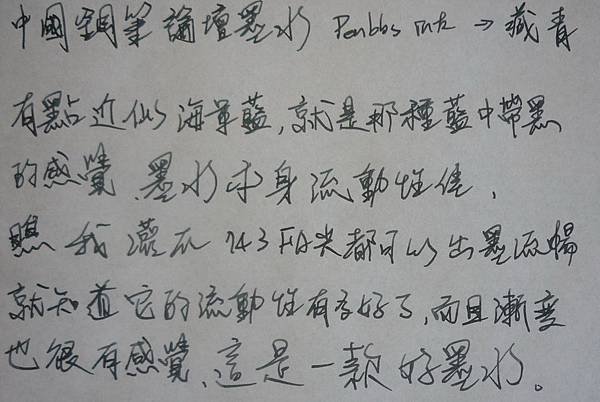 中國鋼筆論壇墨水 Penbbs ink → 藏青
有點近似海軍藍，就是那種藍中帶黑
的感覺，墨水本身流動性佳，
瞧我灌在 743 FA尖都可以出墨流暢
就知道它的流動性有多好了，而且漸變
也很有感覺，這是一款好墨水。